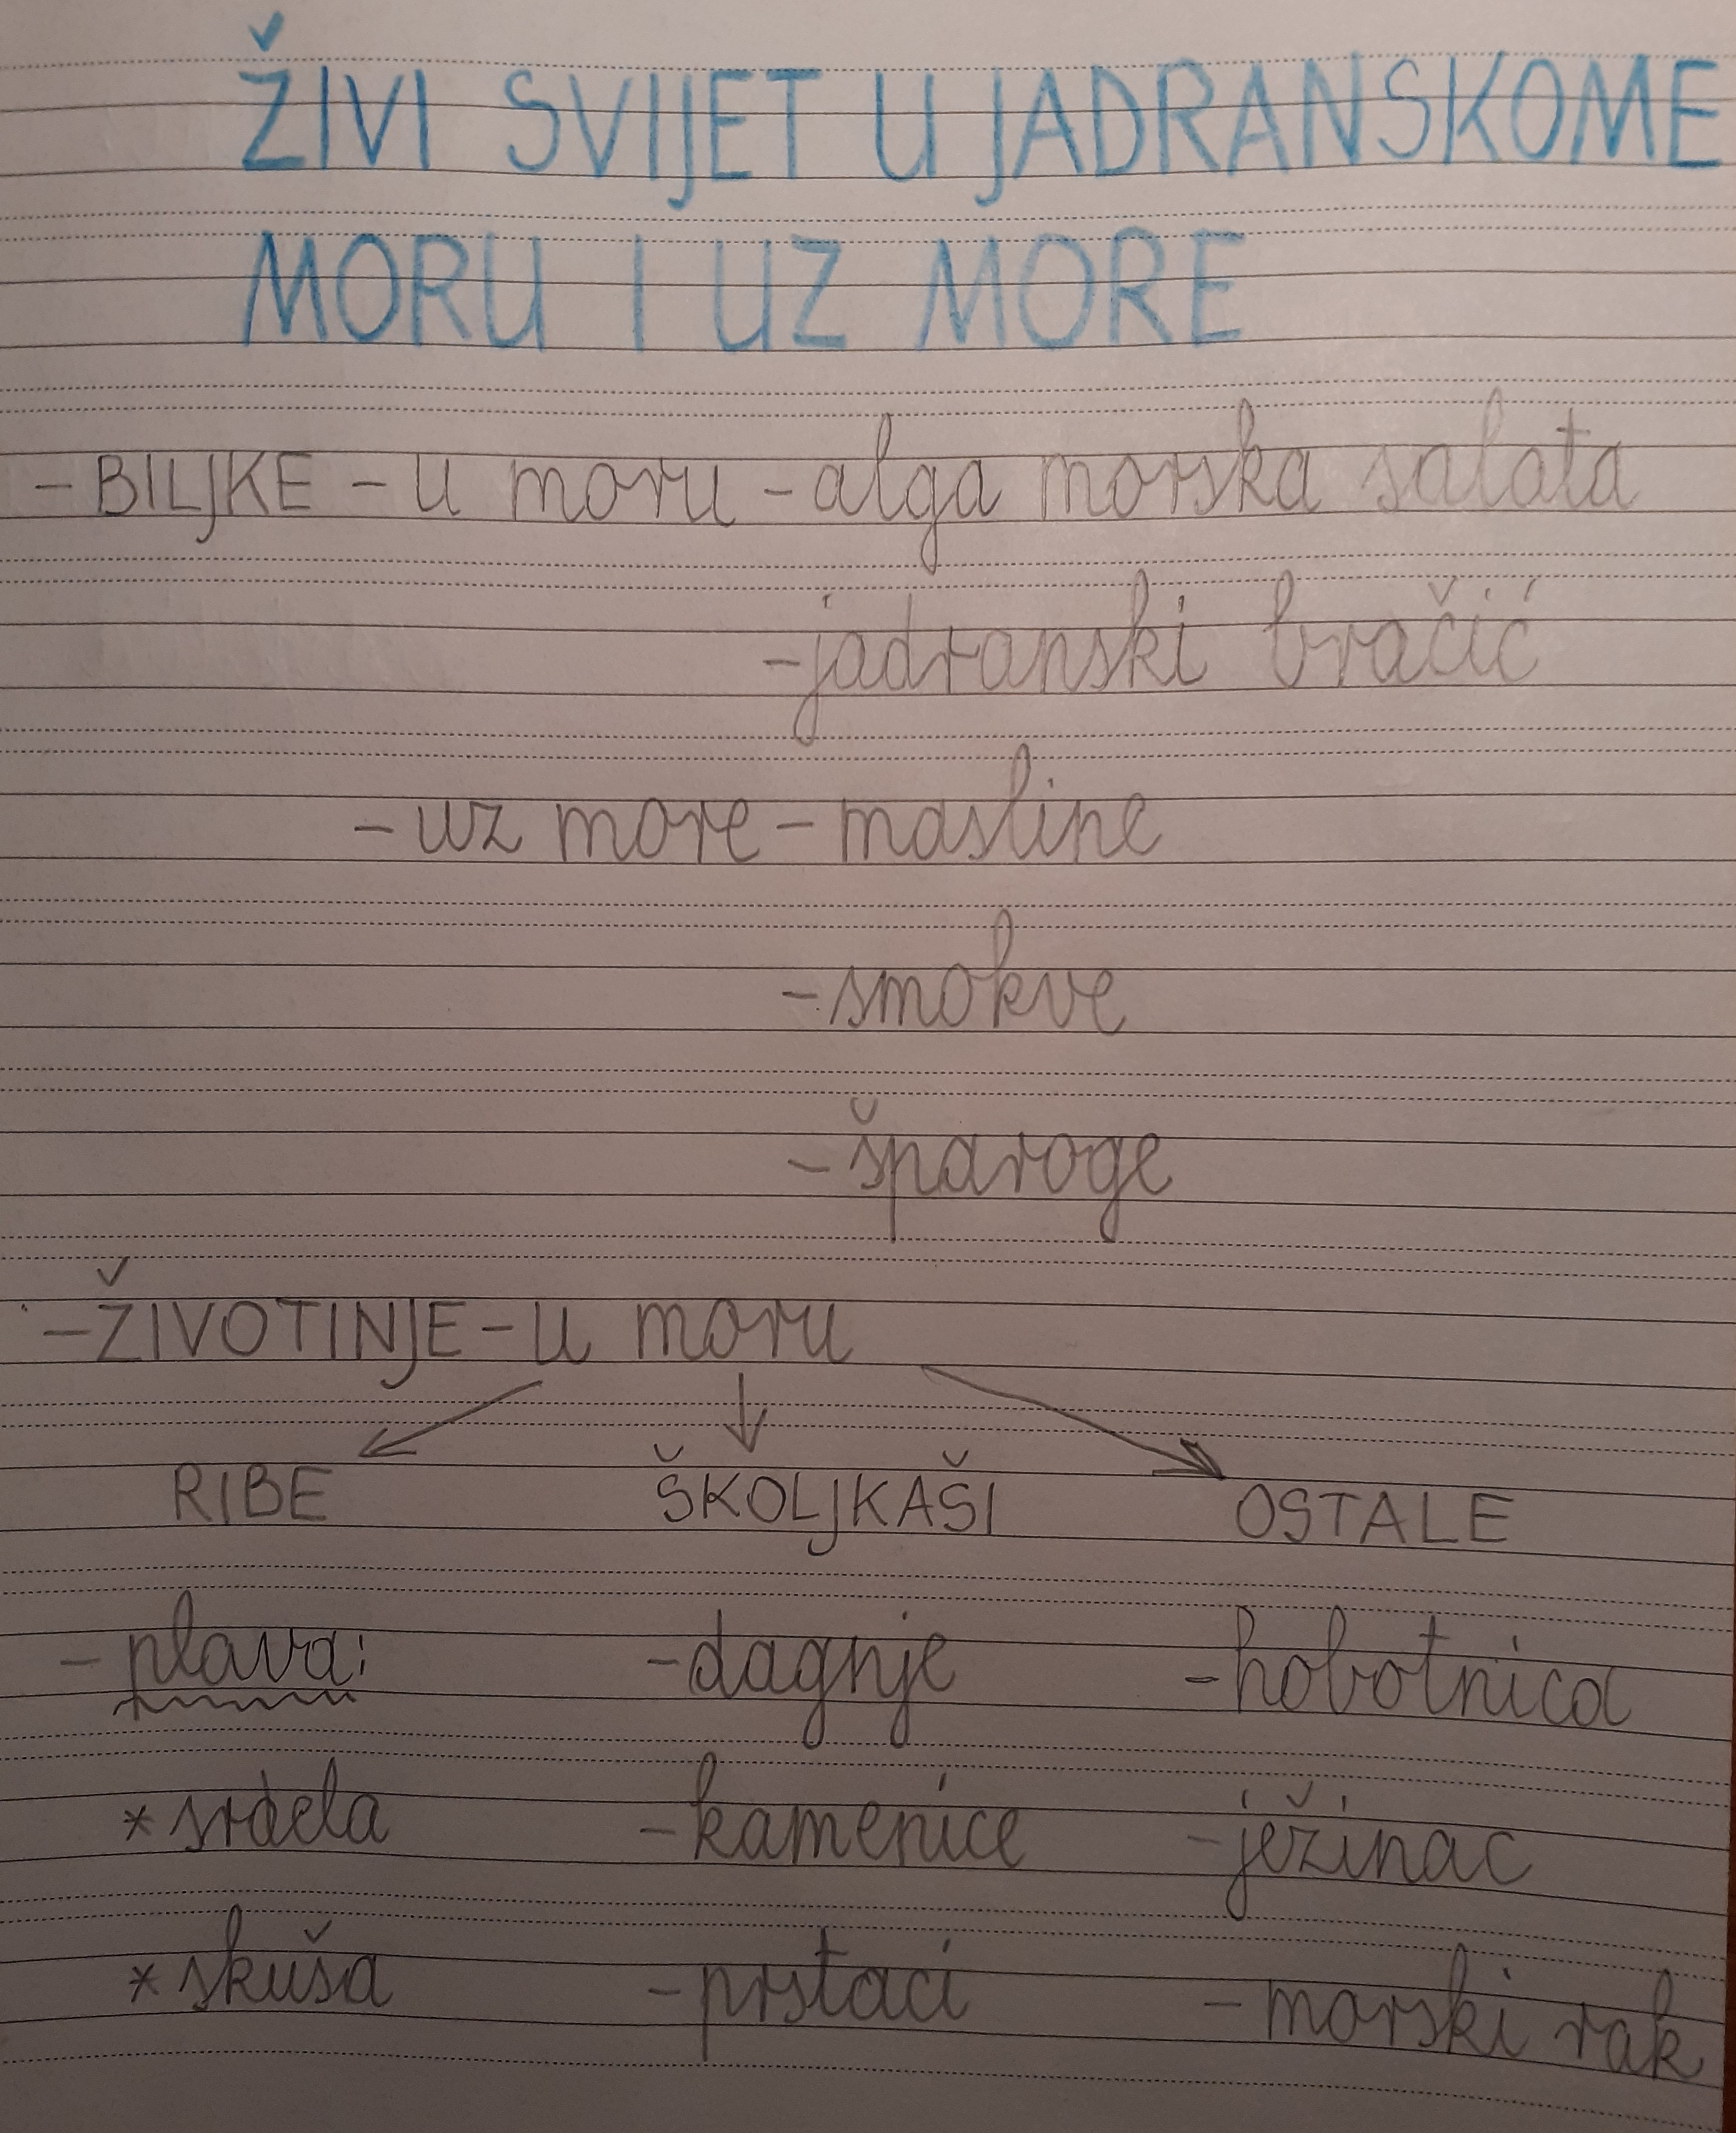 ŽIVI SVIJET U JADRANSKOME
MORU I UZ MORE
- BILJKE - u moru - alga morska salata
- jadranski bračić
- uz more - masline
- smokve
- šparoge
- ŽIVOTINJE - u moru
RIBE ŠKOLJKAŠI OSTALE
- plava: - dagnje - hobotnica
* srdela - kamenice - ježinac
* skuša - prstaci - morski rak